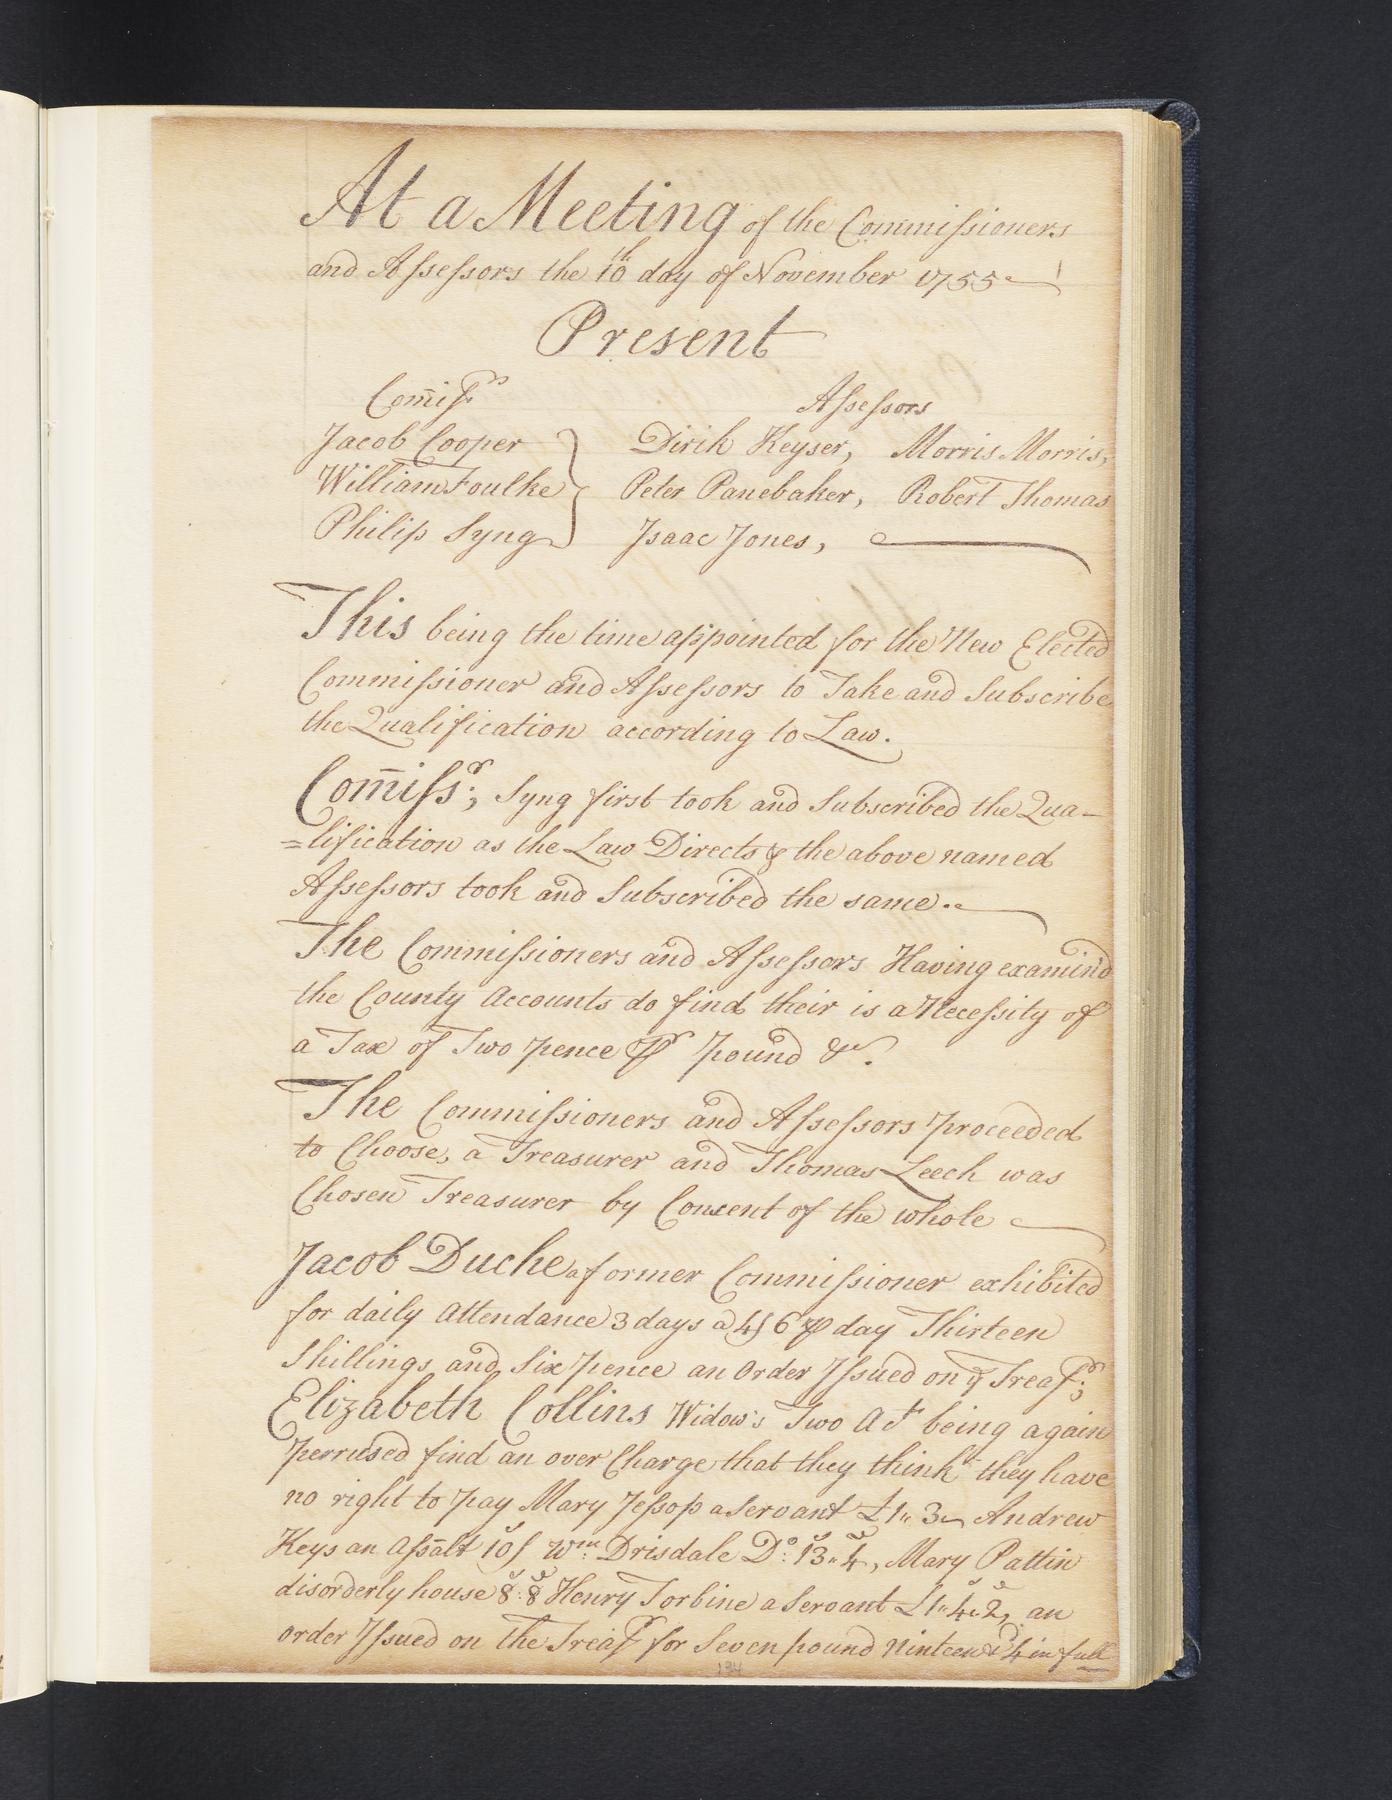 At a Meeting of the Commiſsioners
and Aſseſsors the 10th day of November 1755
Present
Com̄iſsrs
Aſseſsors
Jacob Cooper Dirik Keyser, Morris Morris,
William Foulke Peter Panebaker, Robert Thomas
Philip Syng Isaac Jones,
This being the time appointed for the New Elected
Commiſsioner and Aſseſsors to Take and Subscribe
the Qualification according to Law.
Com̄iſsr:, Syng first took and Subscribed the Qua-
=lification as the Law Directs & the above named
Aſseſsors took and Subscribed the same.
The Commiſsioners and Aſseſsors Having examin'd
the County Accounts do find their is a Neceſsity of
a Tax of Two pence ⅌ pound &c.
The Commiſsioners and Aſseſsors proceeded
to Choose, a Treasurer and Thomas Leech was
Chosen Treasurer by Consent of the whole
Jacob Duche a former Commiſsioner exhibited
for daily Attendance 3 days a 4ſ6 ⅌ day Thirteen
Shillings and Six pence an Order Iſsued on ye Treaſr:;
Elizabeth Collins Widow's Two Act being again
perrused find an over Charge that they think they have
no right to pay Mary Jeſsop a Servant £1„3 Andrew
Keys an Aſsalt 10ſ Wm: Drisdale Do: 13s„4d, Mary Pattin
disorderly house 8s:8d Henry Torbine a Servant £1„4s„2d, an
order Iſsued on the Treaſr for Seven pound Ninteen & 4d in full
134